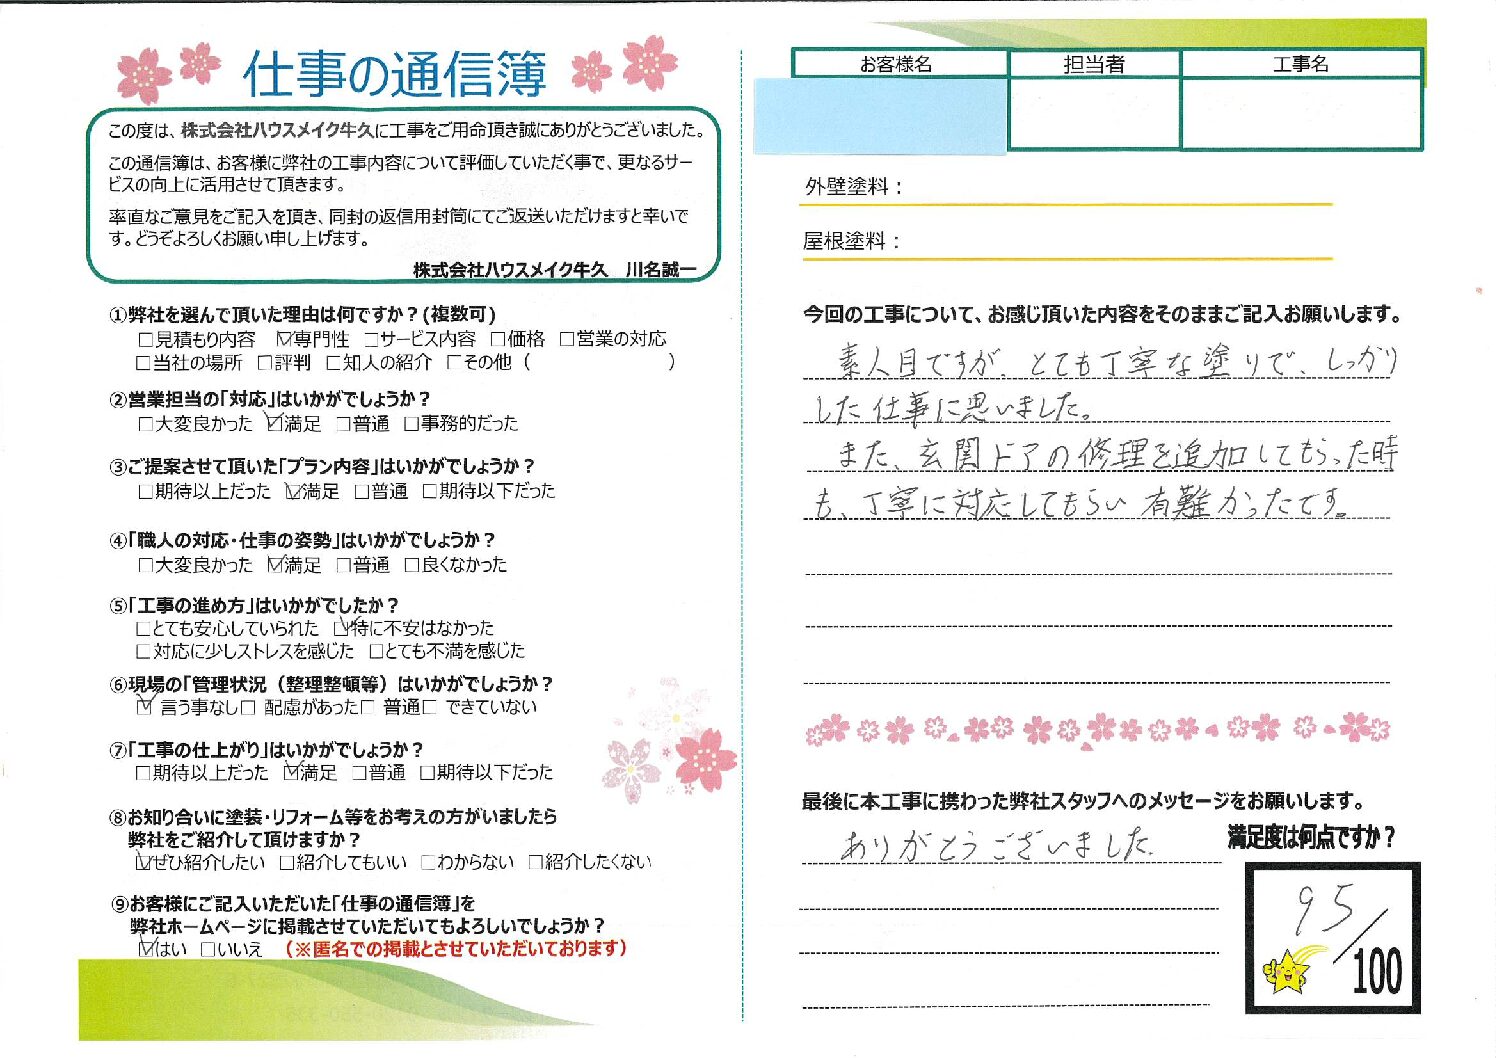 仕事の通信簿
この度は、株式会社ハウスメイク牛久に工事をご用命頂き誠にありがとうございました。
この通信簿は、お客様に弊社の工事内容について評価していただく事で、更なるサー
ビスの向上に活用させて頂きます。
率直なご意見をご記入を頂き、同封の返信用封筒にてご返送いただけますと幸いで
す。どうぞよろしくお願い申し上げます。
株式会社ハウスメイク牛久　川名誠一
①弊社を選んで頂いた理由は何ですか？(複数可)
□見積もり内容 ☑専門性 □サービス内容 □価格 □営業の対応
□当社の場所 □評判 □知人の紹介 □その他（　　　　　　）
②営業担当の「対応」はいかがでしょうか？
□大変良かった ☑満足 □普通 □事務的だった
③ご提案させて頂いた「プラン内容」はいかがでしょうか？
□期待以上だった ☑満足 □普通 □期待以下だった
④「職人の対応・仕事の姿勢」はいかがでしょうか？
□大変良かった ☑満足 □普通 □良くなかった
⑤「工事の進め方」はいかがでしたか？
□とても安心していられた ☑特に不安はなかった
□対応に少しストレスを感じた □とても不満を感じた
⑥現場の「管理状況（整理整頓等）はいかがでしょうか？
☑ 言う事なし□ 配慮があった□ 普通□ できていない
⑦「工事の仕上がり」はいかがでしょうか？
□期待以上だった ☑満足 □普通 □期待以下だった
⑧お知り合いに塗装・リフォーム等をお考えの方がいましたら
弊社をご紹介して頂けますか？
☑ぜひ紹介したい □紹介してもいい □わからない □紹介したくない
⑨お客様にご記入いただいた「仕事の通信簿」を
弊社ホームページに掲載させていただいてもよろしいでしょうか？
☑はい □いいえ （※匿名での掲載とさせていただいております）
お客様名 担当者 工事名
外壁塗料：
屋根塗料：
今回の工事について、お感じ頂いた内容をそのままご記入お願いします。
素人目ですが、とても丁寧な塗りで、しっかり
した仕事に思いました。
また、玄関ドアの修理を追加してもらった時
も、丁寧に対応してもらい有難かったです。
最後に本工事に携わった弊社スタッフへのメッセージをお願いします。
ありがとうございました。
満足度は何点ですか？
95/100